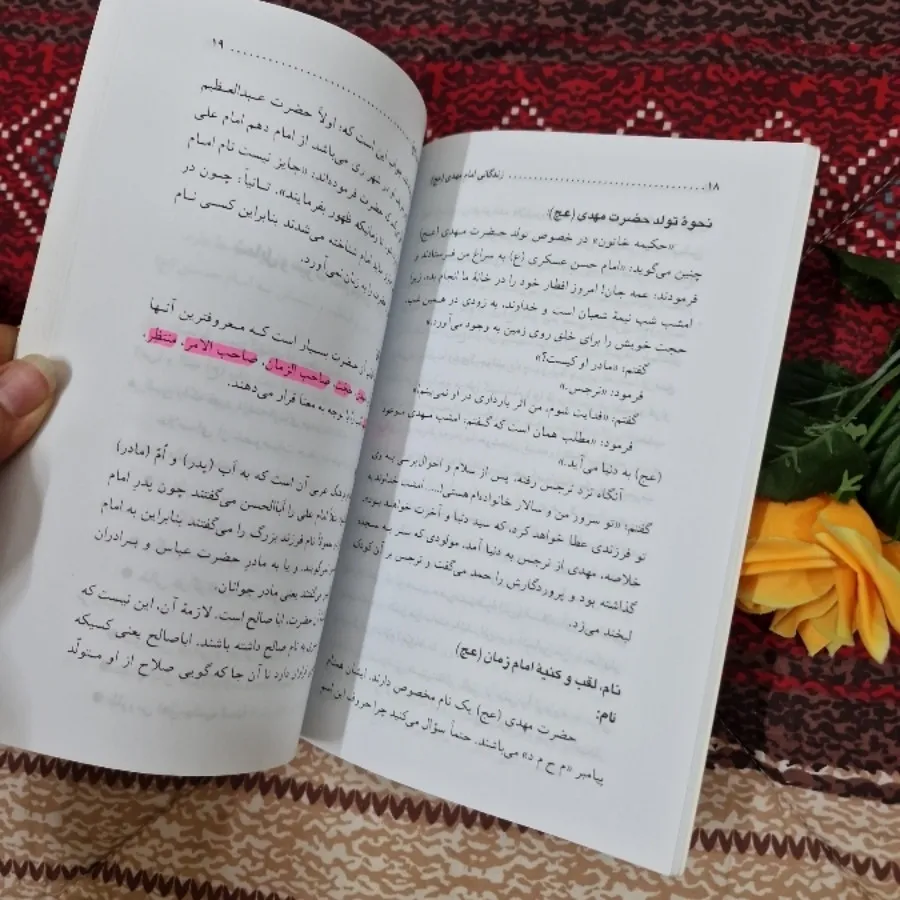 ۱۸ زندگانی امام مهدی (عج)
نحوهٔ تولد حضرت مهدی (عج):
«حکیمه خاتون» در خصوص تولد حضرت مهدی (عج)
چنین می‌گوید: «امام حسن عسکری (ع) به سراغ من فرستادند و
فرمودند: عمه جان! امروز افطار خود را در خانهٔ ما انجام بده، زیرا
امشب شب نیمهٔ شعبان است و خداوند، به زودی در همین شب
حجت خویش را برای خلق روی زمین به وجود می‌آورد.»
گفتم: «مادر او کیست؟»
فرمود: «نرجس.»
گفتم: «فدایت شوم، من اثر بارداری در او نمی‌بینم!»
فرمود: «مطلب همان است که گفتم، امشب مهدی موعود
(عج) به دنیا می‌آید.»
آنگاه نزد نرجس رفته، پس از سلام و احوال‌پرسی به وی
گفتم: «تو سرور من و سالار خانواده‌ام هستی!.... امشب خداوند به
تو فرزندی عطا خواهد کرد، که سید دنیا و آخرت خواهد بود.»
خلاصه، مهدی از نرجس به دنیا آمد. مولودی که سر به سجده
گذاشته بود و پروردگارش را حمد می‌گفت و نرجس بر آن کودک
لبخند می‌زد.
نام، لقب و کنیهٔ امام زمان (عج)
نام:
حضرت مهدی (عج) یک نام مخصوص دارند. ایشان همنام
پیامبر «م ح م د» می‌باشند. حتماً سؤال می‌کنید چرا حروف این اسم
۱۹
این است که: اولاً حضرت عبدالعظیم
در شهر ری می‌باشد از امام دهم امام علی
حضرت فرموده‌اند: «جایز نیست نام امام
تا زمانیکه ظهور بفرمایند». ثانیاً: چون در
باید امام شناخته می‌شدند بنابراین کسی نام
را به زبان نمی‌آورد.
آن حضرت بسیار است که معروفترین آنها
حجت، صاحب الزمان، صاحب الامر، منتظر،
با توجه به معنا قرار می‌دهند.
عربی آن است که به اَب (پدر) و اُمّ (مادر)
امام علی را اباالحسن می‌گفتند چون پدر امام
نام فرزند بزرگ را می‌گفتند بنابراین به امام
می‌گویند. و یا به مادر حضرت عباس و برادران
می‌گفتند یعنی مادر جوانان.
حضرت، ابا صالح است. لازمهٔ آن، این نیست که
به نام صالح داشته باشند. اباصالح یعنی کسیکه
دارد تا آن جا که گویی صلاح از او متولّد